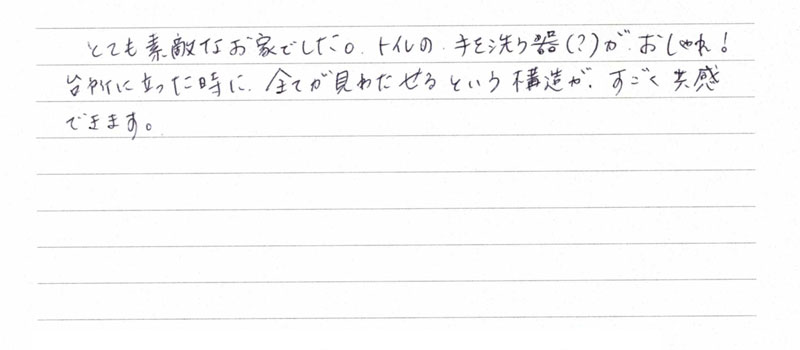 とても素敵なお家でした。トイレの手を洗う器(?)がおしゃれ!
台所に立った時に、全てが見わたせるという構造が、すごく共感
できます。